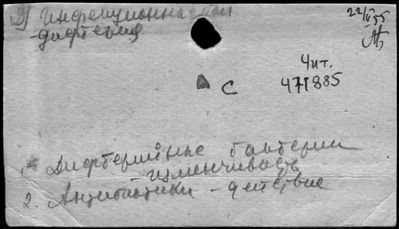 Инфекционная
-дифтерия
22/IV 55
Чит.
471885
С
1. Дифтерийные бактерии
изменчивость
2. Антибиотики - действие